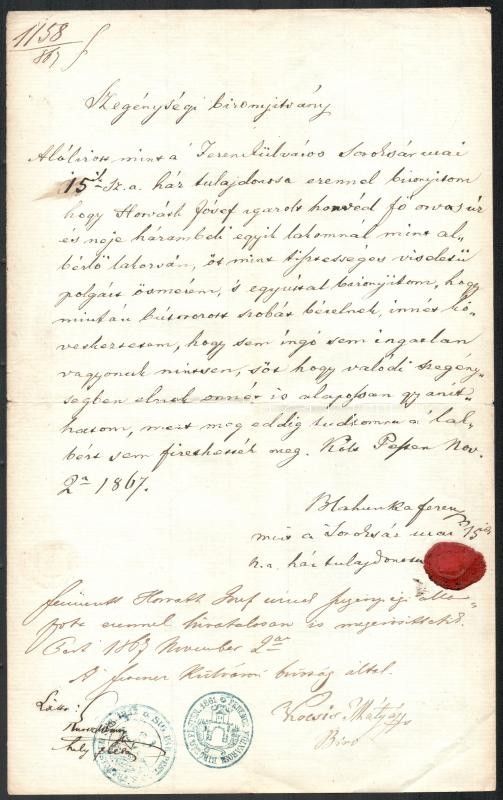 1158
867
Szegénységi bizonyitvány
Alólirott mint a' Ferencz külváros Soroksár utczai
15ik sz. a. ház tulajdonosa ezennel bizonyitom
hogy Horváth József igazolt honvéd fő orvos úr
és neje házambeli egyik lakomnál mint al„
bérlő lakován, őt mint tisztességes viseletű
polgárt ösmerem, s egyúttal bizonyitom, hogy
miután bútorozott szobát bérelnek, innét kö„
vetkeztetem, hogy sem ingó sem ingatlan
vagyonuk nincsen, sőt hogy valódi szegény„
ségben élnek onnét is alapossan gyanit„
hatom, mert még eddig tudtomra a' lak„
bért sem fizethették meg. Kelt Pesten Nov.
2án 1867.
Blahunka Ferencz
mint a' Soroksár utczai 15ik
sz. a. ház tulajdonosa
Fennemlitett Horváth József urnak szegénységi álla„
pota ezennel hivatalosan is megerősittetik.
Pest 1867 November 2án
A' ferencz külvárosi biróság által.
Kocsis Mátyás
Biró
Látta: